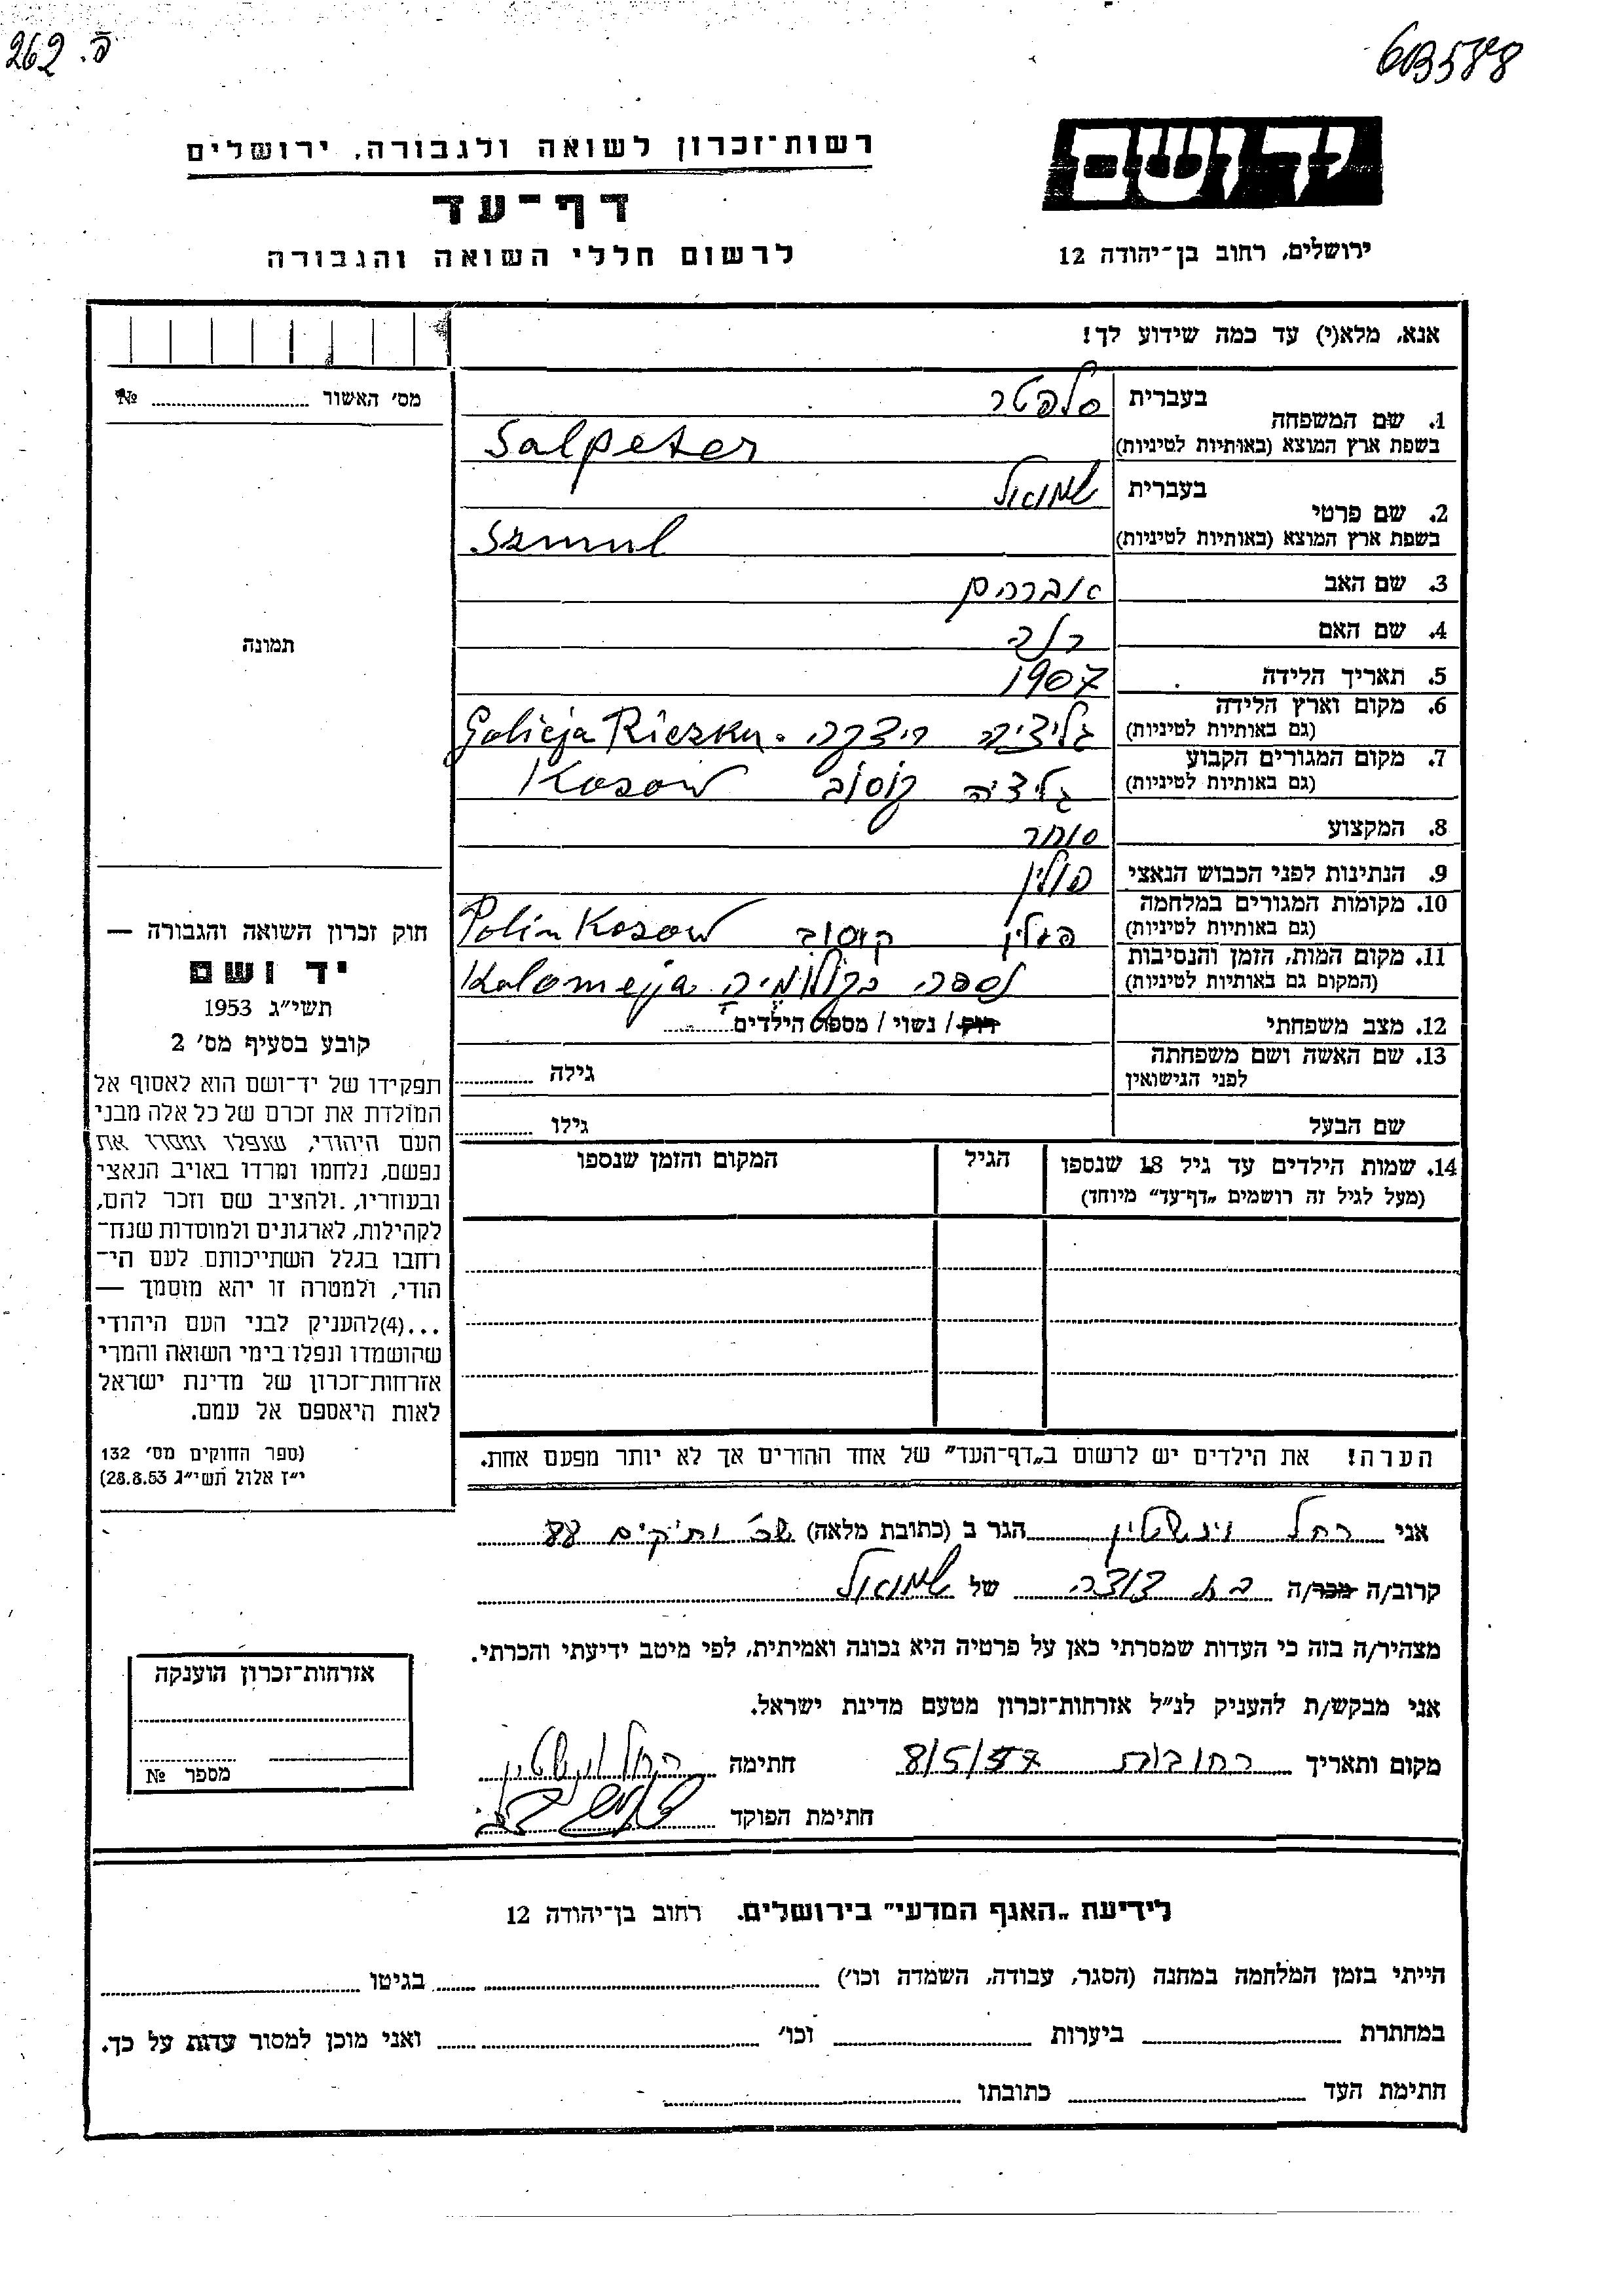 262 .פ
6B588
יד ושם
ירושלים, רחוב בן־יהודה 12
רשות־זכרון לשואה ולגבורה, ירושלים
דף־עד
לרשום חללי השואה והגבורה
אנא, מלא(י) עד כמה שידוע לך!
1. שם המשפחה בעברית סלפטר
בשפת ארץ המוצא (באותיות לטיניות) Salpeter
2. שם פרטי בעברית שמואל
בשפת ארץ המוצא (באותיות לטיניות) Szmul
3. שם האב אברהם
4. שם האם
5. תאריך הלידה 1907
6. מקום וארץ הלידה
(גם באותיות לטיניות) גליציה Galicja
7. מקום המגורים הקבוע
(גם באותיות לטיניות) גליציה קוסוב Kosow
8. המקצוע סוחר
9. הנתינות לפני הכבוש הנאצי פולין
10. מקומות המגורים במלחמה
(גם באותיות לטיניות) פולין קוסוב Polin Kosow
11. מקום המות, הזמן והנסיבות
(המקום גם באותיות לטיניות) נספה בקולומיה Kolomeja
12. מצב משפחתי רוק / נשוי / מספר הילדים
13. שם האשה ושם משפחתה
לפני הנישואין גילה
שם הבעל גילו
14. שמות הילדים עד גיל 18 שנספו הגיל המקום והזמן שנספו
(מעל לגיל זה רושמים „דף־עד" מיוחד)
הערה! את הילדים יש לרשום ב„דף־העד" של אחד ההורים אך לא יותר מפעם אחת.
מס' האשור №
תמונה
חוק זכרון השואה והגבורה —
יד ושם
תשי"ג 1953
קובע בסעיף מס' 2
תפקידו של יד־ושם הוא לאסוף אל
המולדת את זכרם של כל אלה מבני
העם היהודי, שנפלו ומסרו את
נפשם, נלחמו ומרדו באויב הנאצי
ובעוזריו, ולהציב שם וזכר להם,
לקהילות, לארגונים ולמוסדות שנח־
רחבו בגלל השתייכותם לעם הי־
הודי, ולמטרה זו יהא מוסמך —
...(4)להעניק לבני העם היהודי
שהושמדו ונפלו בימי השואה והמרי
אזרחות־זכרון של מדינת ישראל
לאות היאספם אל עמם.
(ספר החוקים מס' 132
י"ז אלול תשי"ג 28.8.53)
אני רחל וינשטיין הגר ב (כתובת מלאה) שכ' ותיקים 88
קרוב/ה מכר/ה בת דודה של שמואל
מצהיר/ה בזה כי העדות שמסרתי כאן על פרטיה היא נכונה ואמיתית, לפי מיטב ידיעתי והכרתי.
אני מבקש/ת להעניק לנ"ל אזרחות־זכרון מטעם מדינת ישראל.
מקום ותאריך רחובות 8/5/57 חתימה רחל וינשטיין
חתימת הפוקד
אזרחות־זכרון הוענקה
מספר №
לידיעת „האגף המדעי" בירושלים. רחוב בן־יהודה 12
הייתי בזמן המלחמה במחנה (הסגר, עבודה, השמדה וכו') בגיטו
במחתרת ביערות וכו' ואני מוכן למסור עדות על כך.
חתימת העד כתובתו